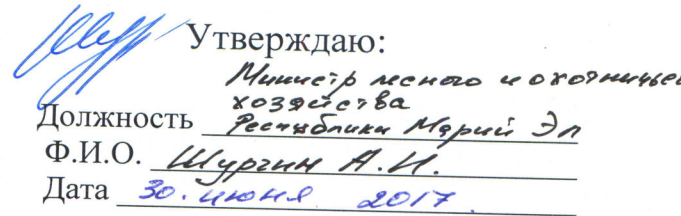 Утверждаю:
Министр лесного и охотничьего
хозяйства
Должность Республики Марий Эл
Ф.И.О. Шургин А.И.
Дата 30. июня 2017.